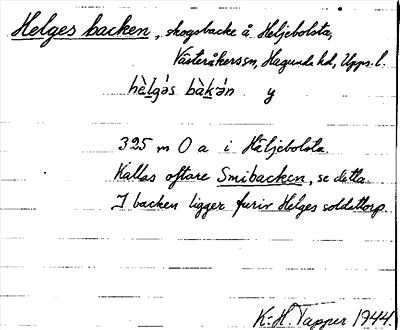 Helges backen, skogsbacke å Heljebolsta,
Västeråkers sn, Hagunda hd, Upps. l.
hèlgəs bàkən y
325 m O a i Häljebolsta
Kallas oftare Smibacken, se detta.
I backen ligger furir Helges soldattorp.
K-H. Tapper 1944.